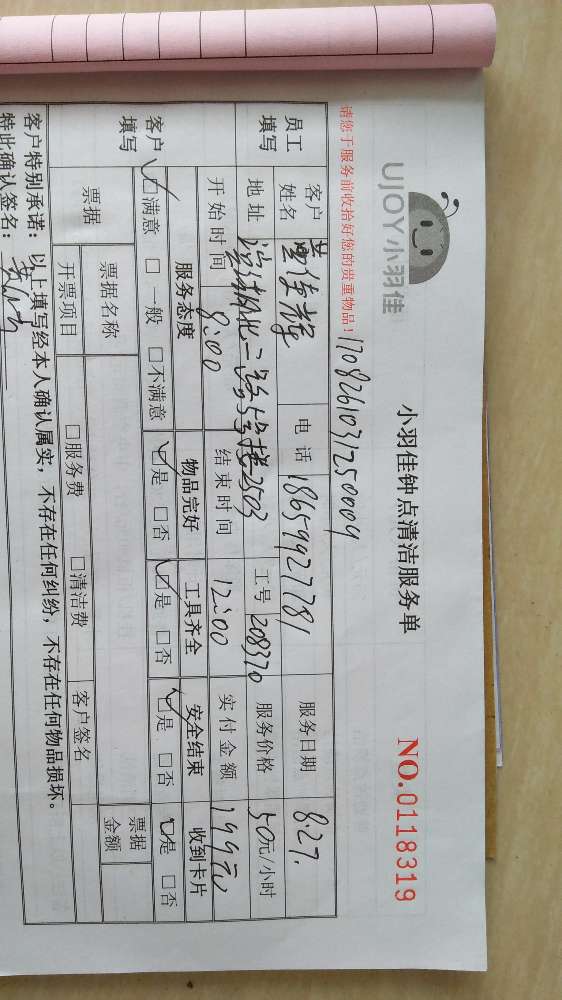 UJOY小羽佳
小羽佳钟点清洁服务单
NO.0118319
请您于服务前收拾好您的贵重物品！
1708261031250009
员工填写
客户姓名 电话 18659927781 服务日期 8.27.
地址 2503 工号 208370 服务价格 50元/小时
开始时间 8:00 结束时间 12:00 实付金额 199元
客户填写
服务态度 物品完好 工具齐全 安全结束 收到卡片
☑满意 □一般 □不满意 ☑是 □否 ☑是 □否 ☑是 □否 ☑是 □否
票据 票据名称 客户签名 票据金额
开票项目 □服务费 □清洁费
客户特别承诺：以上填写经本人确认属实，不存在任何纠纷，不存在任何物品损坏。
特此确认签名：